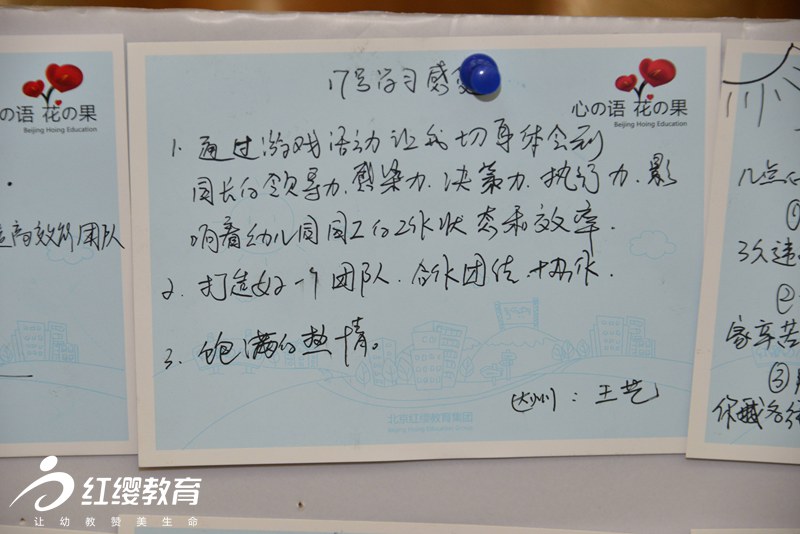 の语 花の果
Beijing Hoing Education
高效的团队
17号学习感
心の语 花の果
Beijing Hoing Education
1. 通过游戏活动让我切身体会到
园长的领导力.感染力.决策力.执行力.影
响着幼儿园同工的工作状态和效率.
2. 打造好一个团队.合作团结.协作.
3. 饱满的热情。
达州：王艺
北京红缨教育集团
几点
①
3次
②
家辛苦
③
红缨教育
让幼教赞美生命